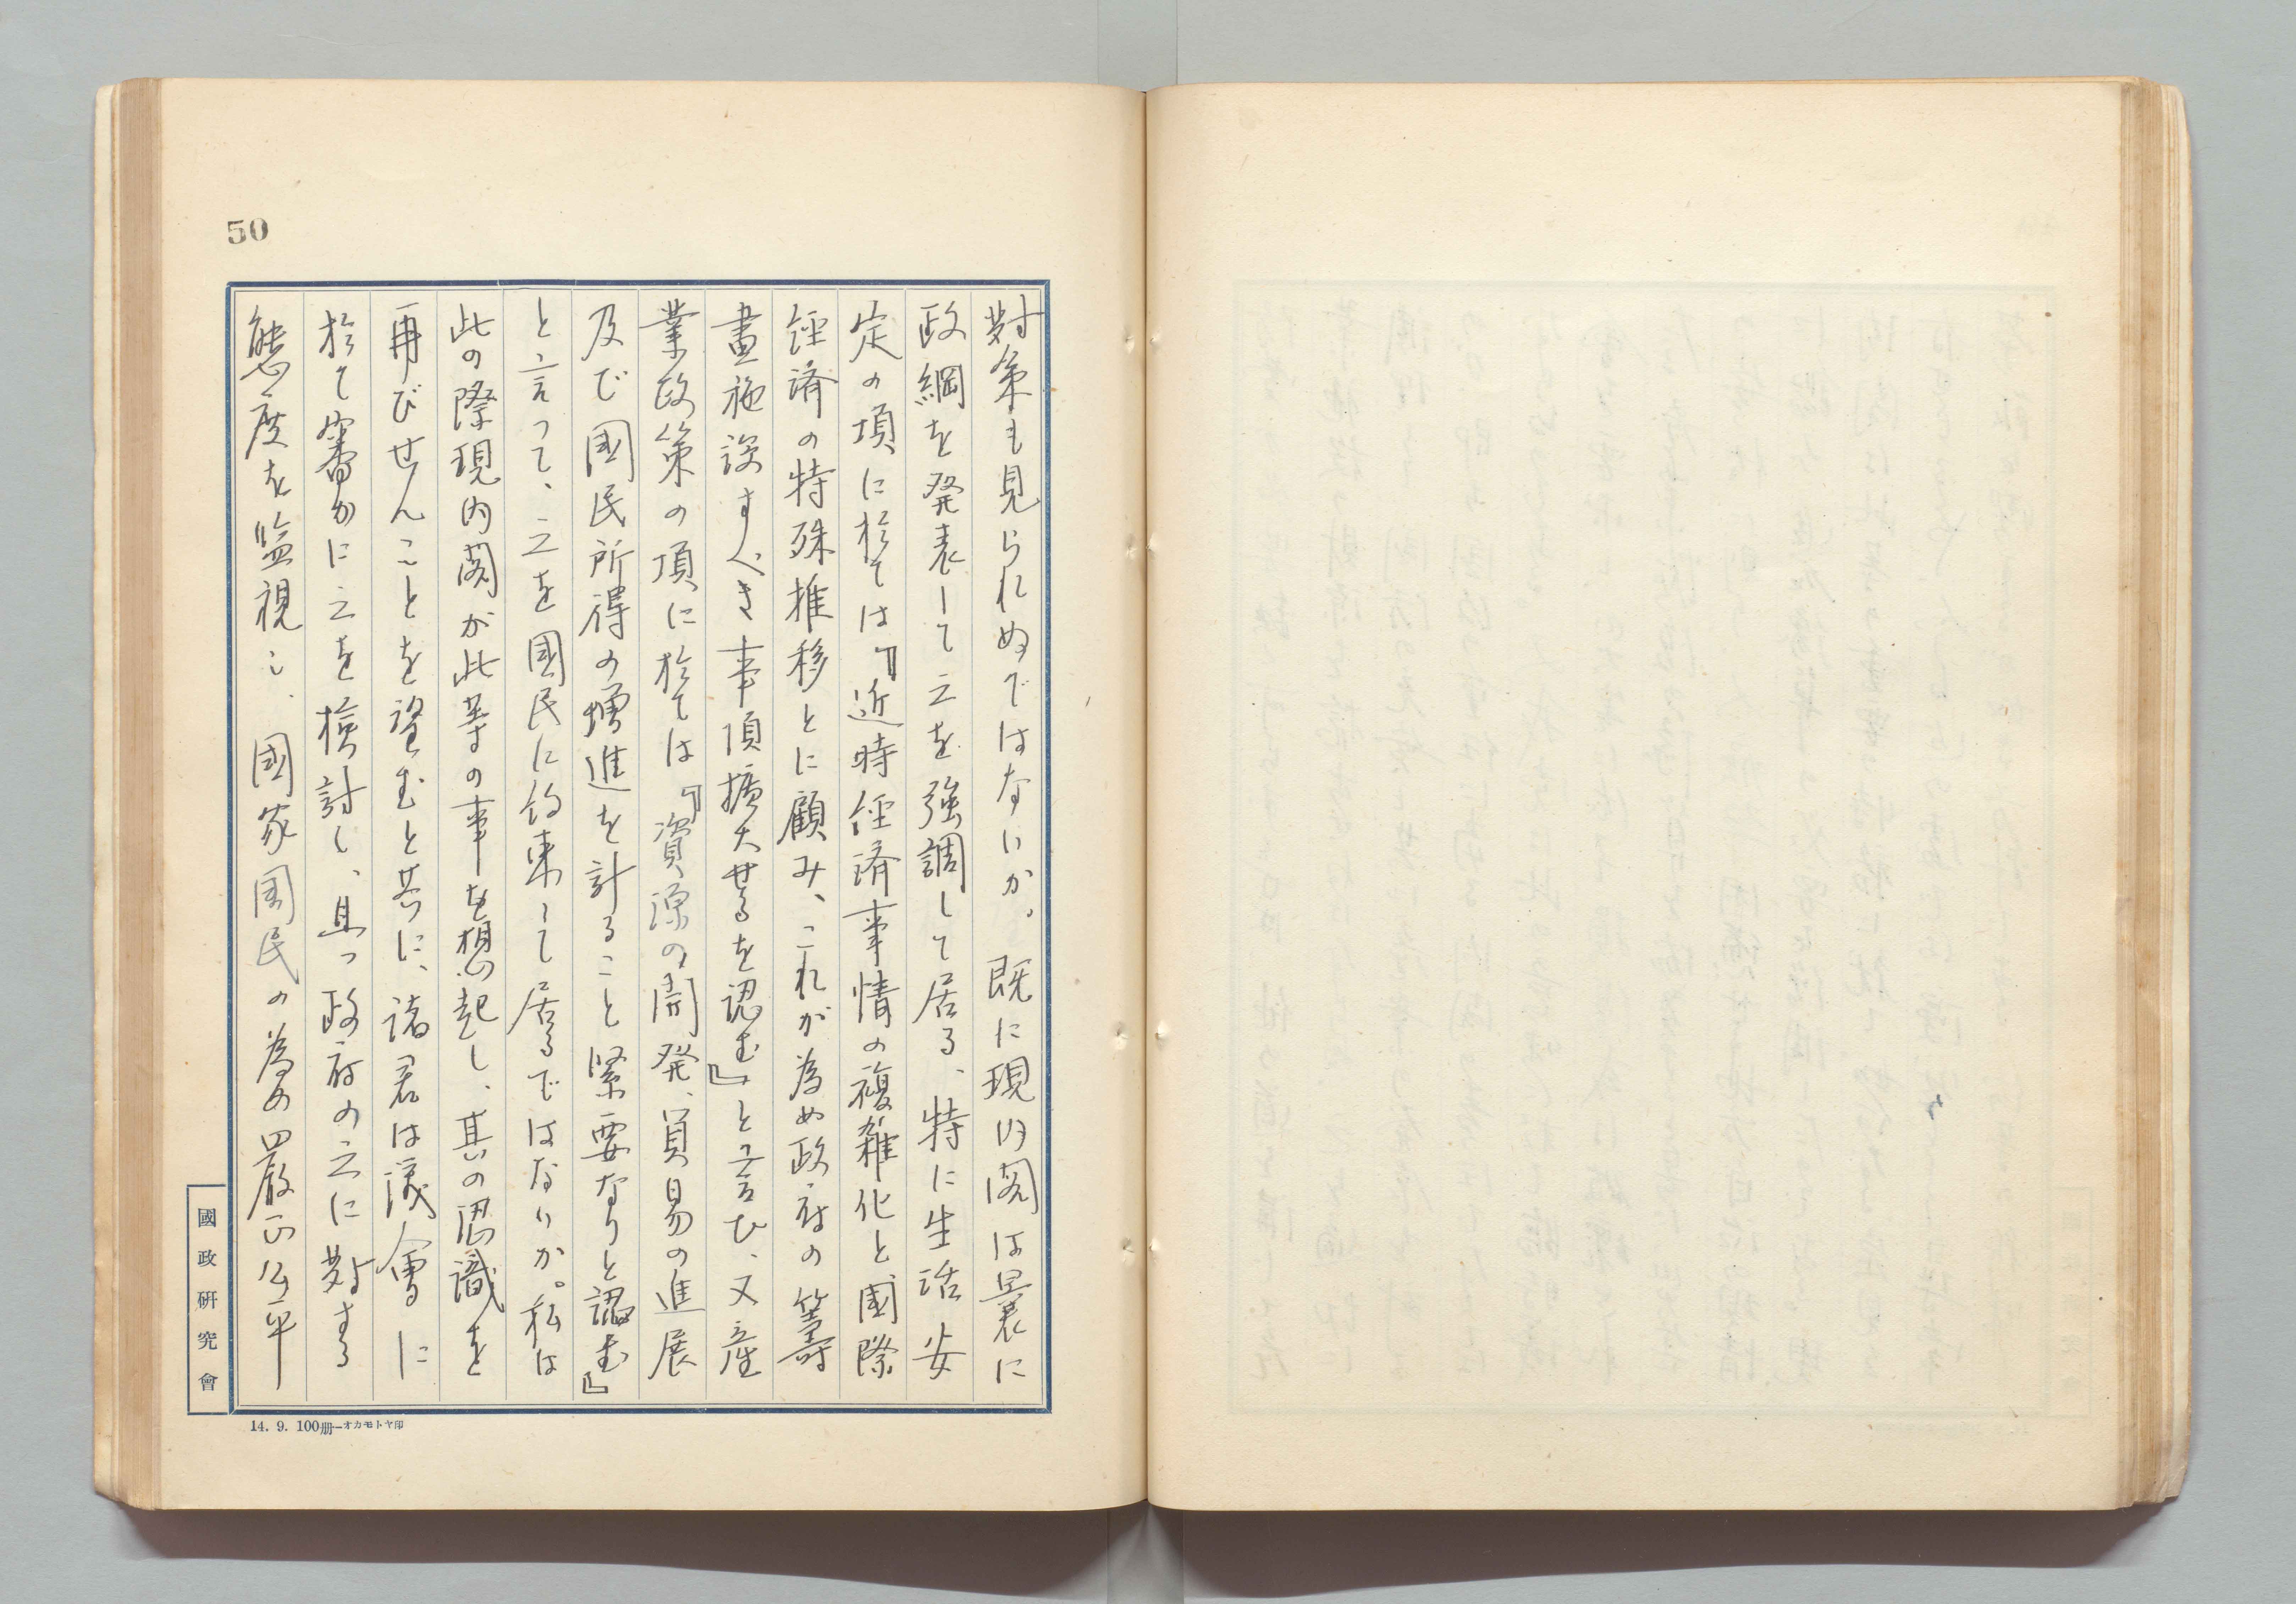 50
対策も見られぬではないか。既に現内閣は曩に
政綱を発表して之を強調して居る、特に生活安
定の項に於ては『近時経済事情の複雑化と國際
経済の特殊推移とに顧み、これが為め政府の籌
畫施設すべき事項擴大せるを認む』と言ひ、又産
業政策の項に於ては『資源の開発、貿易の進展
及び國民所得の増進を計ること緊要なりと認む』
と言って、之を國民に約束して居るではないか。私は
此の際現内閣が此等の事を想起し、其の認識を
再びせんことを望むと共に、諸君は議會に
於て審かに之を検討し、且つ政府の之に対する
態度を監視し、國家国民の為め厳正公平
國政研究會
14. 9. 100册—オカモトヤ印